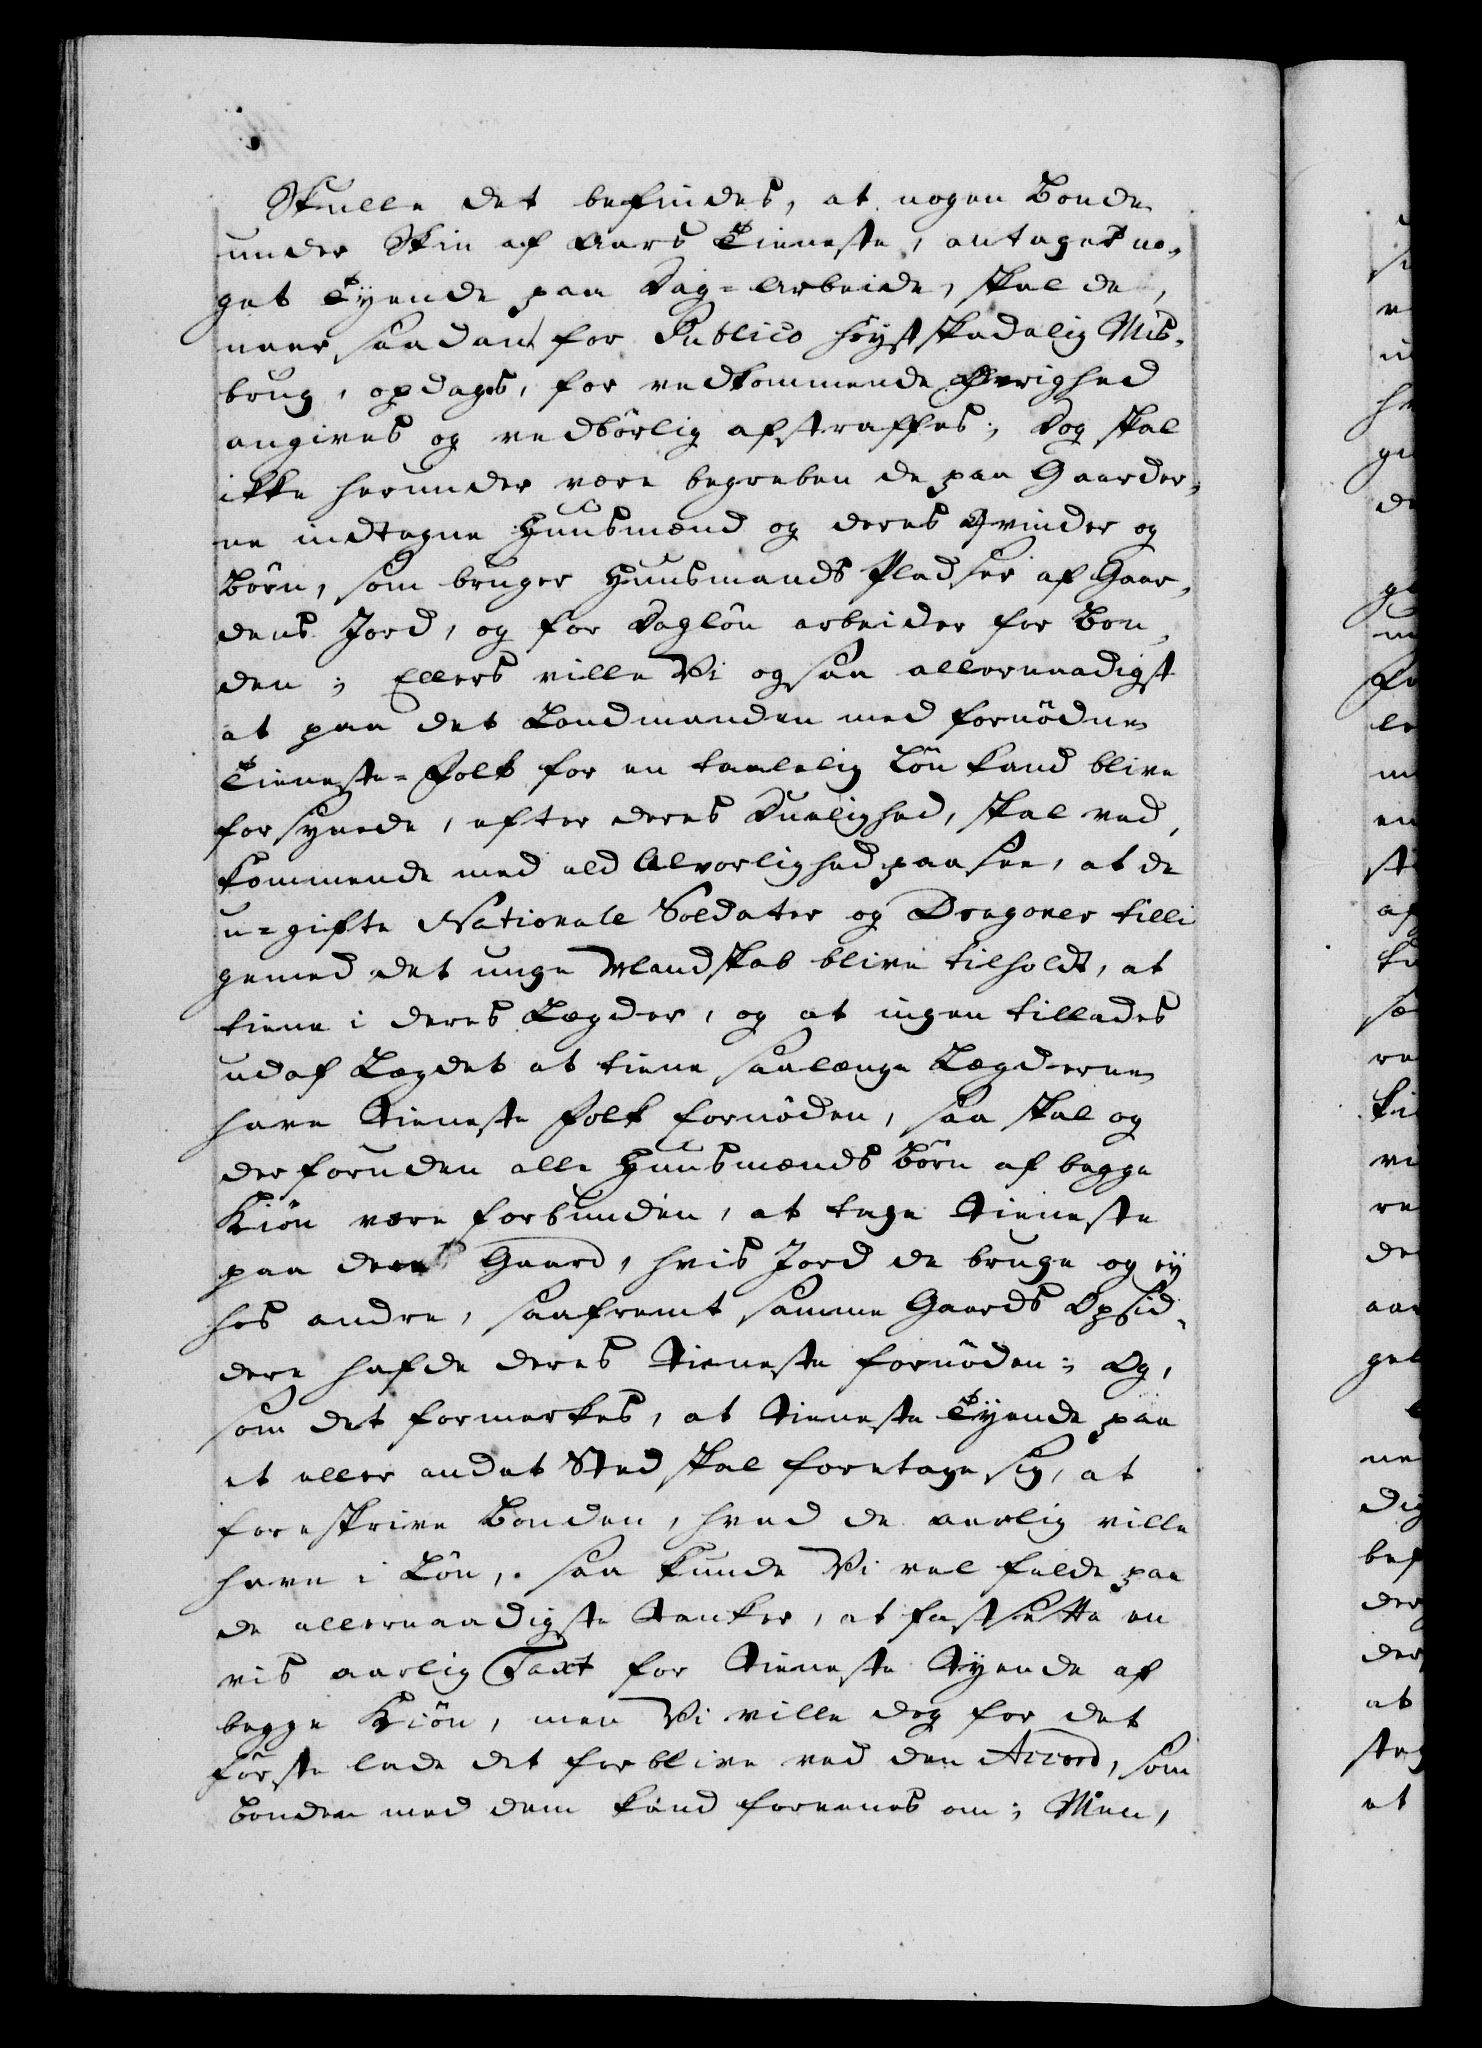 Skulle det befindes, at nogen Bonde
under Skin af Aars Tieneste, antager no-
get Tyende paa Dag-Arbeide, skal de,
naar saadant for Publico høystskadelig Mis-
brug, opdages, for vedkommende Øvrighed
angives og vedbørlig afstraffes; Dog skal
ikke herunder være begreben de paa Gaarder-
ne indtagne Huusmænd og deres Qvinder og
Børn, som bruger Huusmands Pladser af Gaar-
dens Jord, og for Dagløn arbeider for Bon-
den; Ellers ville Vi og saa allernaadigst
at paa det Landmanden med fornødne
Tieneste-Folk for en taalelig Løn kand blive
forsynede, efter deres Duelighed, skal ved-
kommende med ald Alvorlighed paasee, at de
u-gifte Nationale Soldater og Dragoner tilli
gemed det unge Mandskab blive tilholdt, at
tiene i deres Lægder, og at ingen tillades
udaf Lægdet at tiene saalænge Lægderne
have Tieneste Folk fornøden, saa skal og
derforuden alle Huusmænds Børn af begge
Kiøn være forbunden, at tage Tieneste
paa deres Gaard, hvis Jord de bruge og ey
hos andre, saafremt samme Gaards Opsid-
dere hafde deres Tieneste fornøden; Og,
som det formerkes, at Tieneste Tyende paa
et eller andet Sted skal foretage sig, at
foreskrive Bonden, hvad de aarlig ville
have i Løn, saa kunde Vi vel falde paa
de allernaadigste Tanker, at fastsætte en
vis aarlig Taxt for Tieneste Tyende af
begge Kiøn, men Vi ville dog for det
første lade det forblive ved den Accord, som
Bonden med dem kand foreenes om; Men,